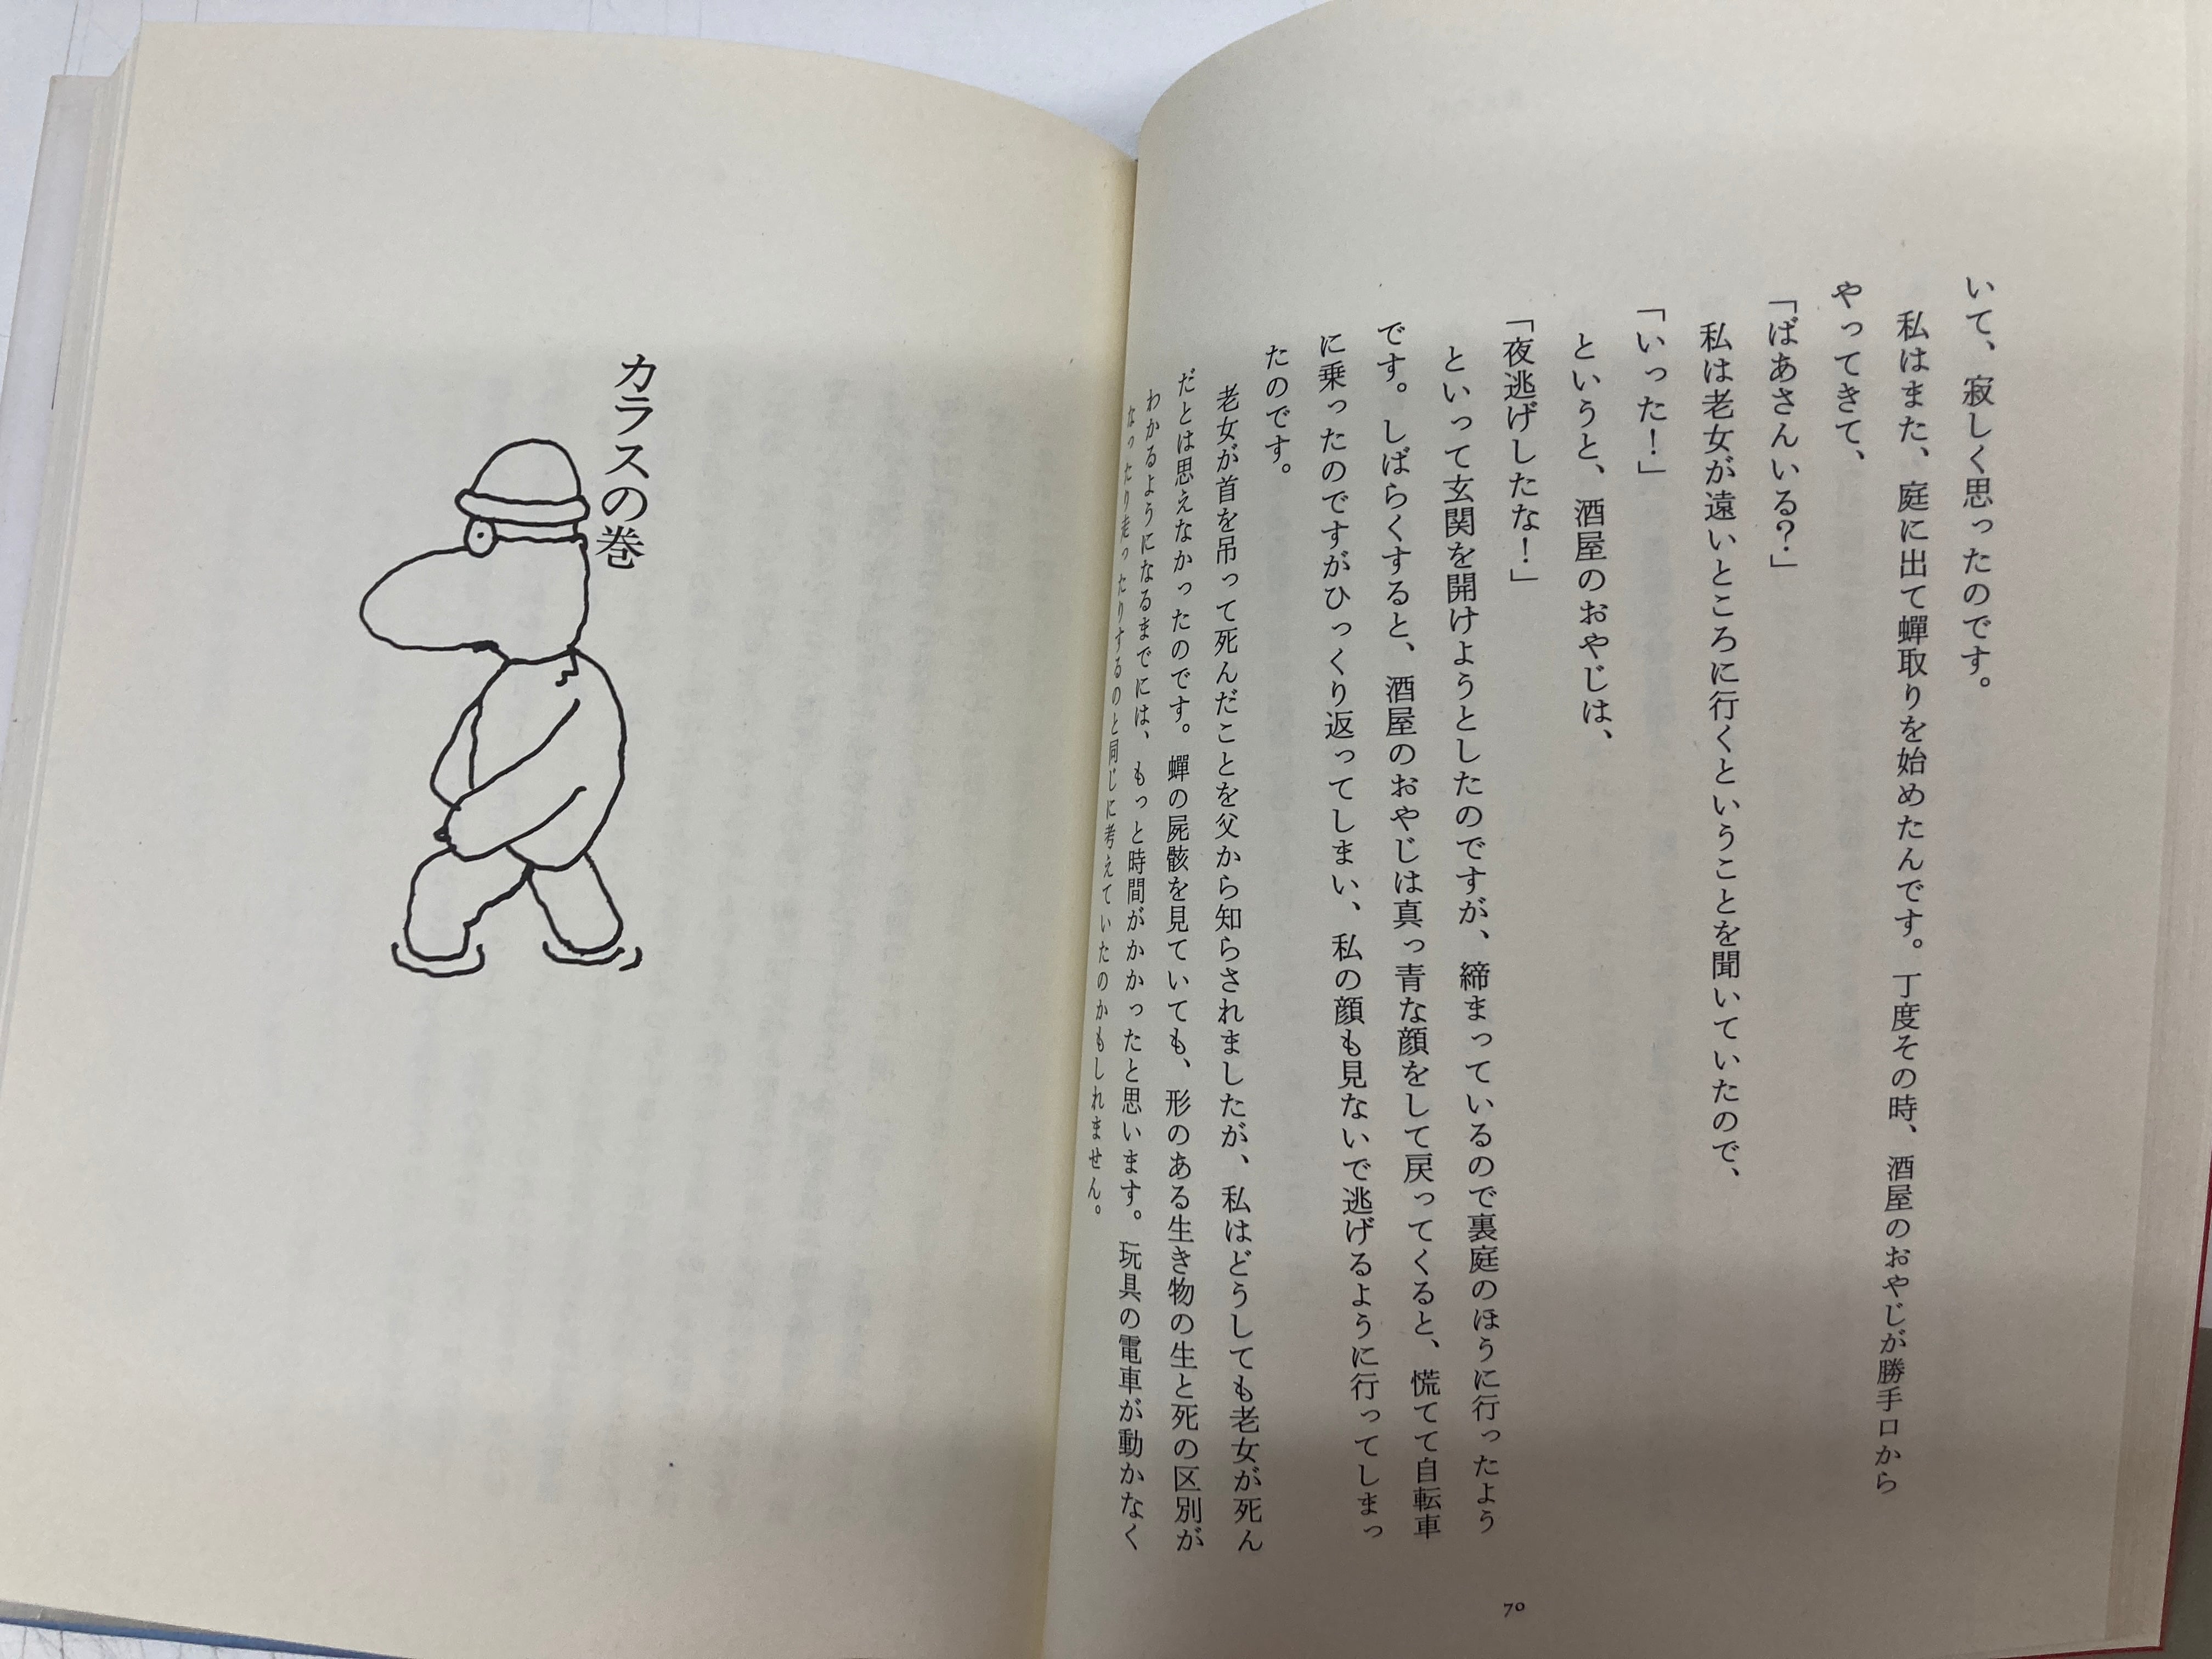 いて、寂しく思ったのです。
私はまた、庭に出て蟬取りを始めたんです。丁度その時、酒屋のおやじが勝手口から
やってきて、
「ばあさんいる？」
私は老女が遠いところに行くということを聞いていたので、
「いった！」
というと、酒屋のおやじは、
「夜逃げしたな！」
といって玄関を開けようとしたのですが、締まっているので裏庭のほうに行ったよう
です。しばらくすると、酒屋のおやじは真っ青な顔をして戻ってくると、慌てて自転車
に乗ったのですがひっくり返ってしまい、私の顔も見ないで逃げるように行ってしまっ
たのです。
老女が首を吊って死んだことを父から知らされましたが、私はどうしても老女が死ん
だとは思えなかったのです。蟬の屍骸を見ていても、形のある生き物の生と死の区別が
わかるようになるまでには、もっと時間がかかったと思います。玩具の電車が動かなく
なったり走ったりするのと同じに考えていたのかもしれません。
70
カラスの巻